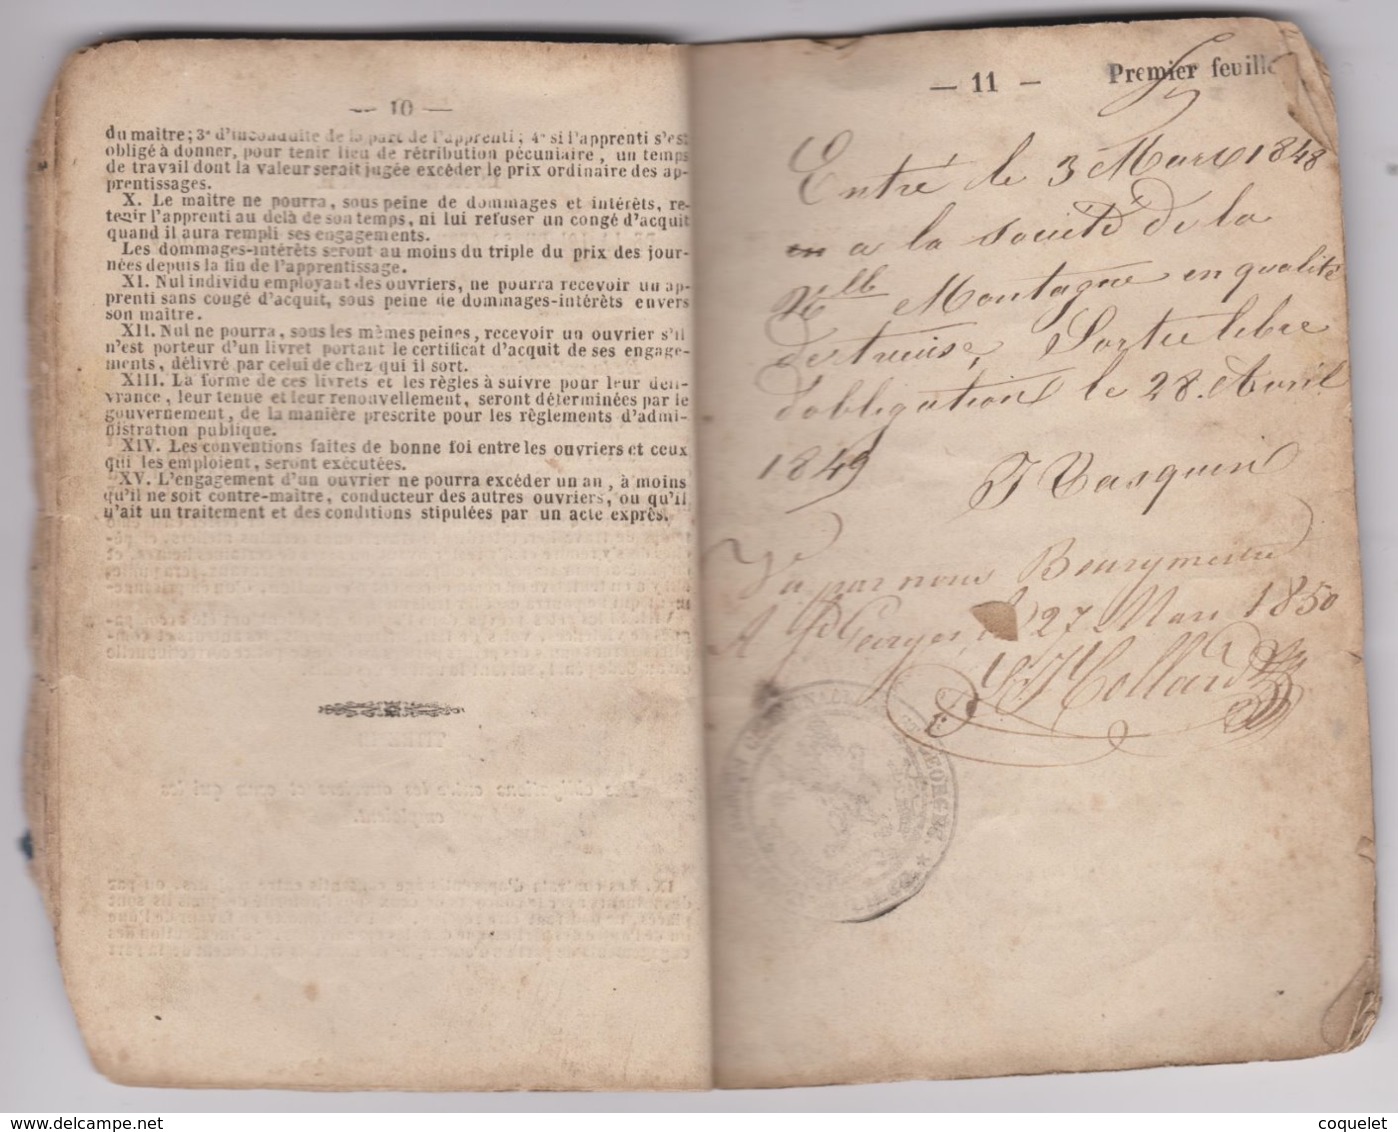 — 10 —
du maître; 3° d'inconduite de la part de l'apprenti; 4° si l'apprenti s'est
obligé à donner, pour tenir lieu de rétribution pécuniaire, un temps
de travail dont la valeur serait jugée excéder le prix ordinaire des ap-
prentissages.
X. Le maître ne pourra, sous peine de dommages et intérêts, re-
tenir l'apprenti au delà de son temps, ni lui refuser un congé d'acquit
quand il aura rempli ses engagements.
Les dommages-intérêts seront au moins du triple du prix des jour-
nées depuis la fin de l'apprentissage.
XI. Nul individu employant des ouvriers, ne pourra recevoir un ap-
prenti sans congé d'acquit, sous peine de dommages-intérêts envers
son maître.
XII. Nul ne pourra, sous les mêmes peines, recevoir un ouvrier s'il
n'est porteur d'un livret portant le certificat d'acquit de ses engage-
ments, délivré par celui de chez qui il sort.
XIII. La forme de ces livrets et les règles à suivre pour leur déli-
vrance, leur tenue et leur renouvellement, seront déterminées par le
gouvernement, de la manière prescrite pour les règlements d'admi-
nistration publique.
XIV. Les conventions faites de bonne foi entre les ouvriers et ceux
qui les emploient, seront exécutées.
XV. L'engagement d'un ouvrier ne pourra excéder un an, à moins
qu'il ne soit contre-maître, conducteur des autres ouvriers, ou qu'il
n'ait un traitement et des conditions stipulées par un acte exprès.
— 11 — Premier feuille
Entré le 3 Mars 1848
a la Société de la
Nlle Montagne en qualité
de Sortie libre
d'obligation le 28. Avril
1849
Vu par nous Bourgmestre
A St Georges, le 27 Mars 1850
Collard
coquelet